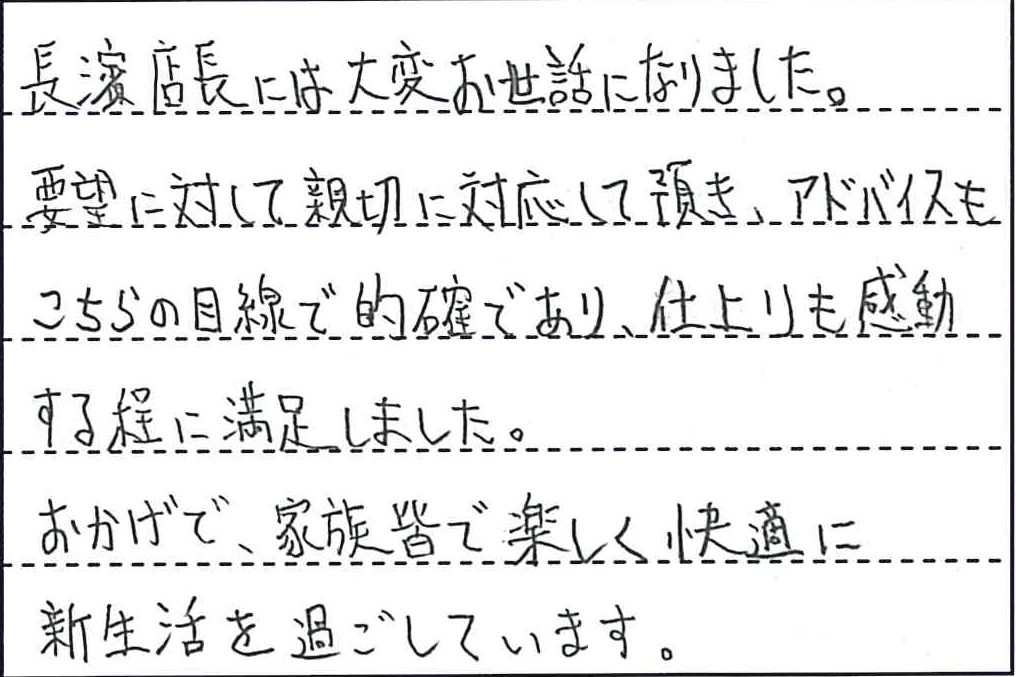 長濱店長には大変お世話になりました。
要望に対して親切に対応して頂き、アドバイスも
こちらの目線で的確であり、仕上りも感動
する程に満足しました。
おかげで、家族皆で楽しく快適に
新生活を過ごしています。